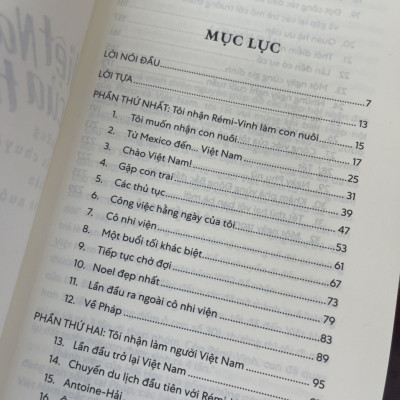 MỤC LỤC
LỜI NÓI ĐẦU 7
LỜI TỰA 13
PHẦN THỨ NHẤT: Tôi nhận Rémi-Vinh làm con nuôi 15
1. Tôi muốn nhận con nuôi 17
2. Từ Mexico đến... Việt Nam 25
3. Chào Việt Nam! 31
4. Gặp con trai 39
5. Các thủ tục 47
6. Công việc hằng ngày của tôi 53
7. Cô nhi viện 61
8. Một buổi tối khác biệt 67
9. Tiếp tục chờ đợi 73
10. Noel đẹp nhất 79
11. Lần đầu ra ngoài cô nhi viện 83
12. Về Pháp 89
PHẦN THỨ HAI: Tôi nhận làm người Việt Nam 95
13. Lần đầu trở lại Việt Nam
14. Chuyến du lịch đầu tiên với
15. Antoine-Hải
16.